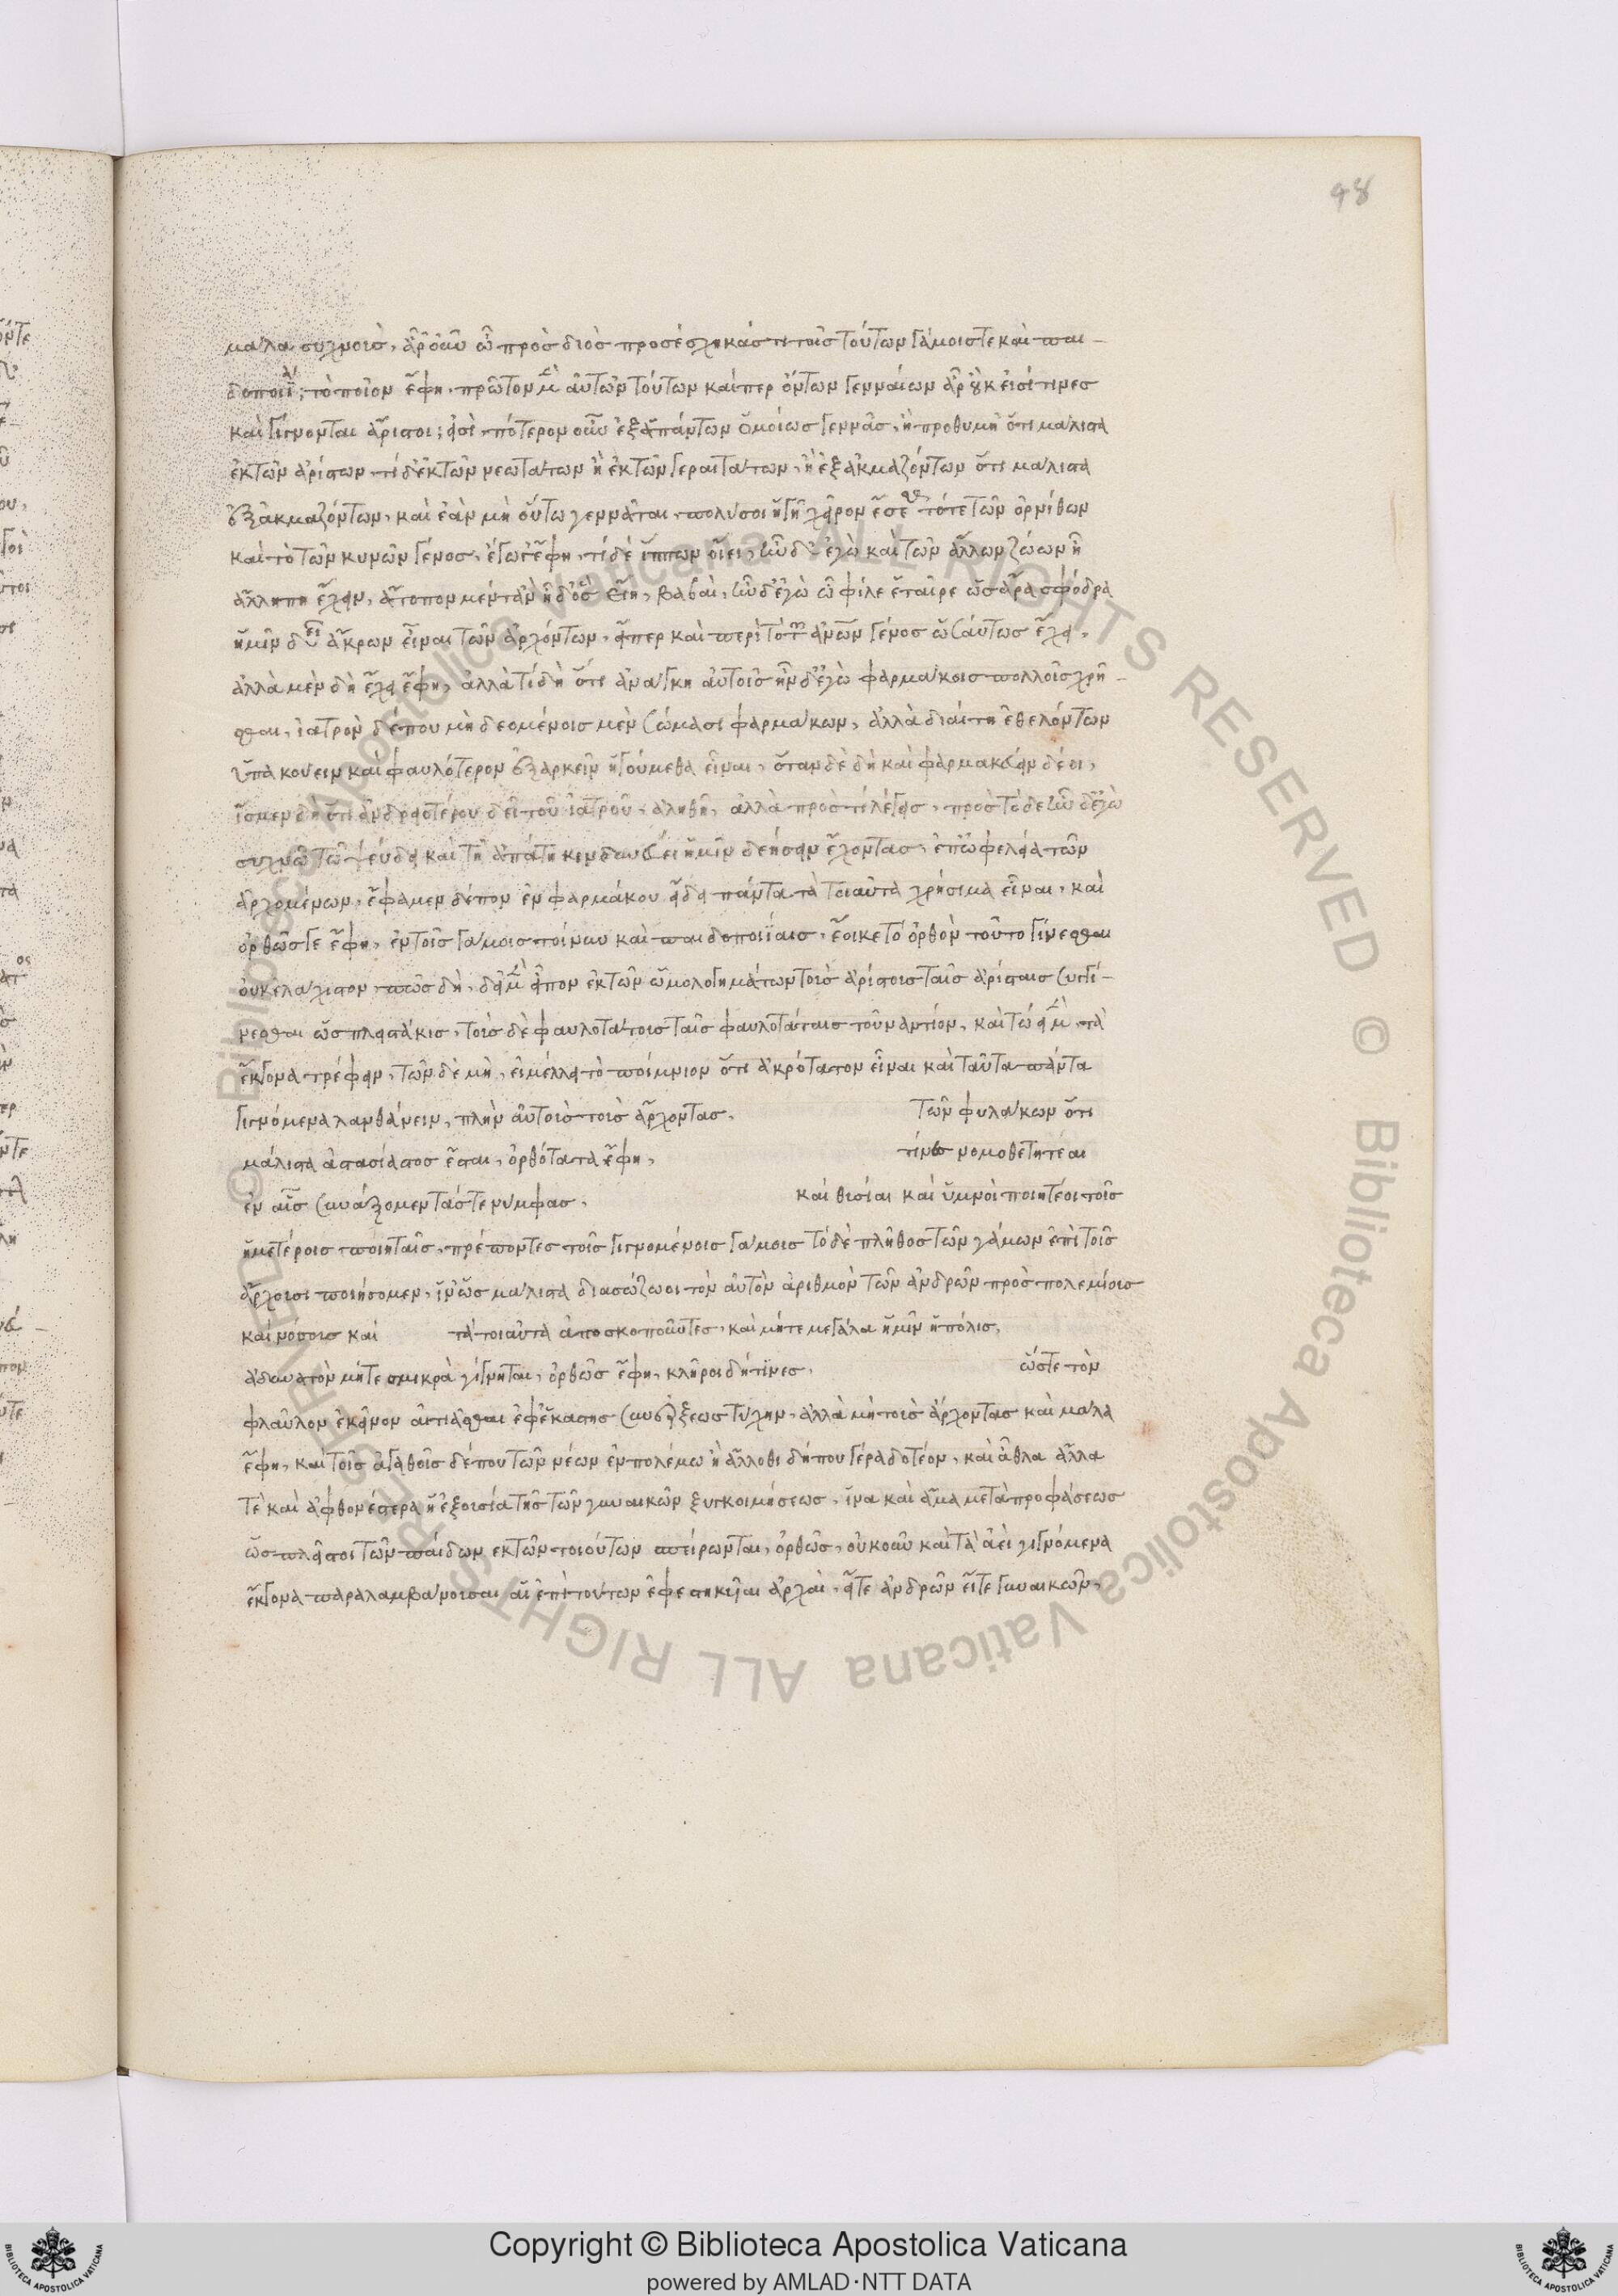 98
μάλα συχνοὺς, ἆρ' οὖν ὦ πρὸς διὸς προσέσχηκάς τι τοῖς τούτων γάμοις τε καὶ παι-
δοποιΐ; τὸ ποῖον ἔφη, πρῶτον μὲ αὐτῶν τούτων καίπερ ὄντων γενναίων ἆρ' οὐκ εἰσί τινες
καὶ γίγνονται ἄριστοι; εἰσὶ, πότερον οὖν ἐξ ἁπάντων ὁμοίως γεννᾶς, ἢ προθυμῆ ὅτι μάλιστα
ἐκ τῶν ἀρίστων, τί δ' ἐκ τῶν νεωτάτων ἢ ἐκ τῶν γεραιτάτων, ἢ ἐξ ἀκμαζόντων ὅτι μάλιστα
ἐξ ἀκμαζόντων, καὶ ἐὰν μὴ οὕτω γεννᾶται, πολύ σοι ἡγῆ χεῖρον ἔσεσθαι τό τε τῶν ὀρνίθων
καὶ τὸ τῶν κυνῶν γένος, ἔγωγ' ἔφη, τί δὲ ἵππων οἴει, ἦν δ' ἐγὼ καὶ τῶν ἄλλων ζώων ἢ
ἄλλη πη ἔχειν, ἄτοπον μέντ' ἂν ἦ δ' ὃς εἴη, βαβαὶ, ἦν δ' ἐγὼ ὦ φίλε ἑταῖρε ὡς ἄρα σφόδρα
ἡμῖν δεῖ ἄκρων εἶναι τῶν ἀρχόντων, εἴπερ καὶ περὶ τὸ τῶν ἀνων γένος ὡσαύτως ἔχει,
ἀλλὰ μὲν δὴ ἔχει ἔφη, ἀλλὰ τί δὴ ὅτι ἀνάγκη αὐτοῖς ἦν δ' ἐγὼ φαρμάκοις πολλοῖς χρῆ-
σθαι, ἰατρὸν δέ που μὴ δεομένοις μὲν σώμασι φαρμάκων, ἀλλὰ διαίτη ἐθελόντων
ὑπακούειν καὶ φαυλότερον ἐξαρκεῖν ἡγούμεθα εἶναι, ὅταν δὲ δὴ καὶ φαρμακεύειν δέοι,
ἴσμεν δὴ ὅτι ἀνδρειοτέρου δεῖ τοῦ ἰατροῦ, ἀληθῆ, ἀλλὰ πρὸς τί λέγεις, πρὸς τόδε ἦν δ' ἐγὼ
συχνῶ τῶ ψεύδει καὶ τῆ ἀπάτη κινδυνεύει ἡμῖν δεήσειν ἔχοντας, ἐπ' ὠφελεία τῶν
ἀρχομένων, ἔφαμεν δέ που ἐν φαρμάκου εἴδει πάντα τὰ τοιαῦτα χρήσιμα εἶναι, καὶ
ὀρθῶς γε ἔφη, ἐν τοῖς γάμοις τοίνυν καὶ παιδοποιΐαις, ἔοικε τὸ ὀρθὸν τοῦτο γίνεσθαι
οὐκ ἐλάχιστον, πῶς δὴ, δεῖ μὲ εἶπον ἐκ τῶν ὡμολογημάτων τοὺς ἀρίστοις ταῖς ἀρίσταις συγγί-
νεσθαι ὡς πλειστάκις, τοὺς δὲ φαυλοτάτοις ταῖς φαυλοτάταις τοὐναντίον, καὶ τῶ εἰ μὲ τὰ
ἔκγονα τρέφειν, τῶν δὲ μὴ, εἰ μέλλει τὸ ποίμνιον ὅτι ἀκρότατον εἶναι καὶ ταῦτα πάντα
γιγνόμενα λανθάνειν, πλὴν αὐτοὺς τοὺς ἄρχοντας, τῶν φυλάκων ὅτι
μάλιστα ἀστασίαστος ἔσται, ὀρθότατα ἔφη, τίνες νομοθετητέαι
ἐν αἷς συνάξομεν τάς τε νύμφας, καὶ θυσίαι καὶ ὕμνοι ποιητέοι τοῖς
ἡμετέροις ποιηταῖς, πρέποντες τοῖς γιγνομένοις γάμοις τὸ δὲ πλῆθος τῶν γάμων ἐπὶ τοῖς
ἄρχουσι ποιήσομεν, ἵν' ὡς μάλιστα διασώζωσι τὸν αὐτὸν ἀριθμὸν τῶν ἀνδρῶν πρὸς πολεμίους
καὶ νόσους καὶ τὰ τοιαῦτα ἀποσκοποῦντες, καὶ μήτε μεγάλα ἡμῖν ἡ πόλις,
ἀδυνατὸν μήτε σμικρὰ γίγνηται, ὀρθῶς ἔφη, κλῆροι δή τινες, ὥστε τὸν
φλαῦλον ἐκεῖνον αἰτιᾶσθαι ἐφ' ἑκάστης συνέρξεως τύχην, ἀλλὰ μὴ τοὺς ἄρχοντας καὶ μάλα
ἔφη, καὶ τοῖς ἀγαθοῖς δέ που τῶν νέων ἐν πολέμω ἢ ἄλλοθι δήπου γέρα δοτέον, καὶ ἆθλα ἄλλα
τε καὶ ἀφθονέστερα ἡ ἐξουσία τῆς τῶν γυναικῶν ξυγκοιμήσεως, ἵνα καὶ ἅμα μετὰ προφάσεως
ὡς πλεῖστοι τῶν παίδων ἐκ τῶν τοιούτων σπείρωνται, ὀρθῶς, οὐκοῦν καὶ τὰ ἀεὶ γιγνόμενα
ἔκγονα παραλαμβάνουσαι αἱ ἐπὶ τούτων ἐφεστηκυῖαι ἀρχαὶ, εἴτε ἀνδρῶν εἴτε γυναικῶν,
© Biblioteca Apostolica Vaticana ALL RIGHTS RESERVED
Copyright © Biblioteca Apostolica Vaticana
powered by AMLAD·NTT DATA